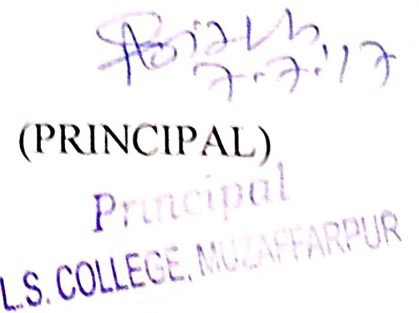 7.7.17
(PRINCIPAL)
Principal
L.S. COLLEGE, MUZAFFARPUR